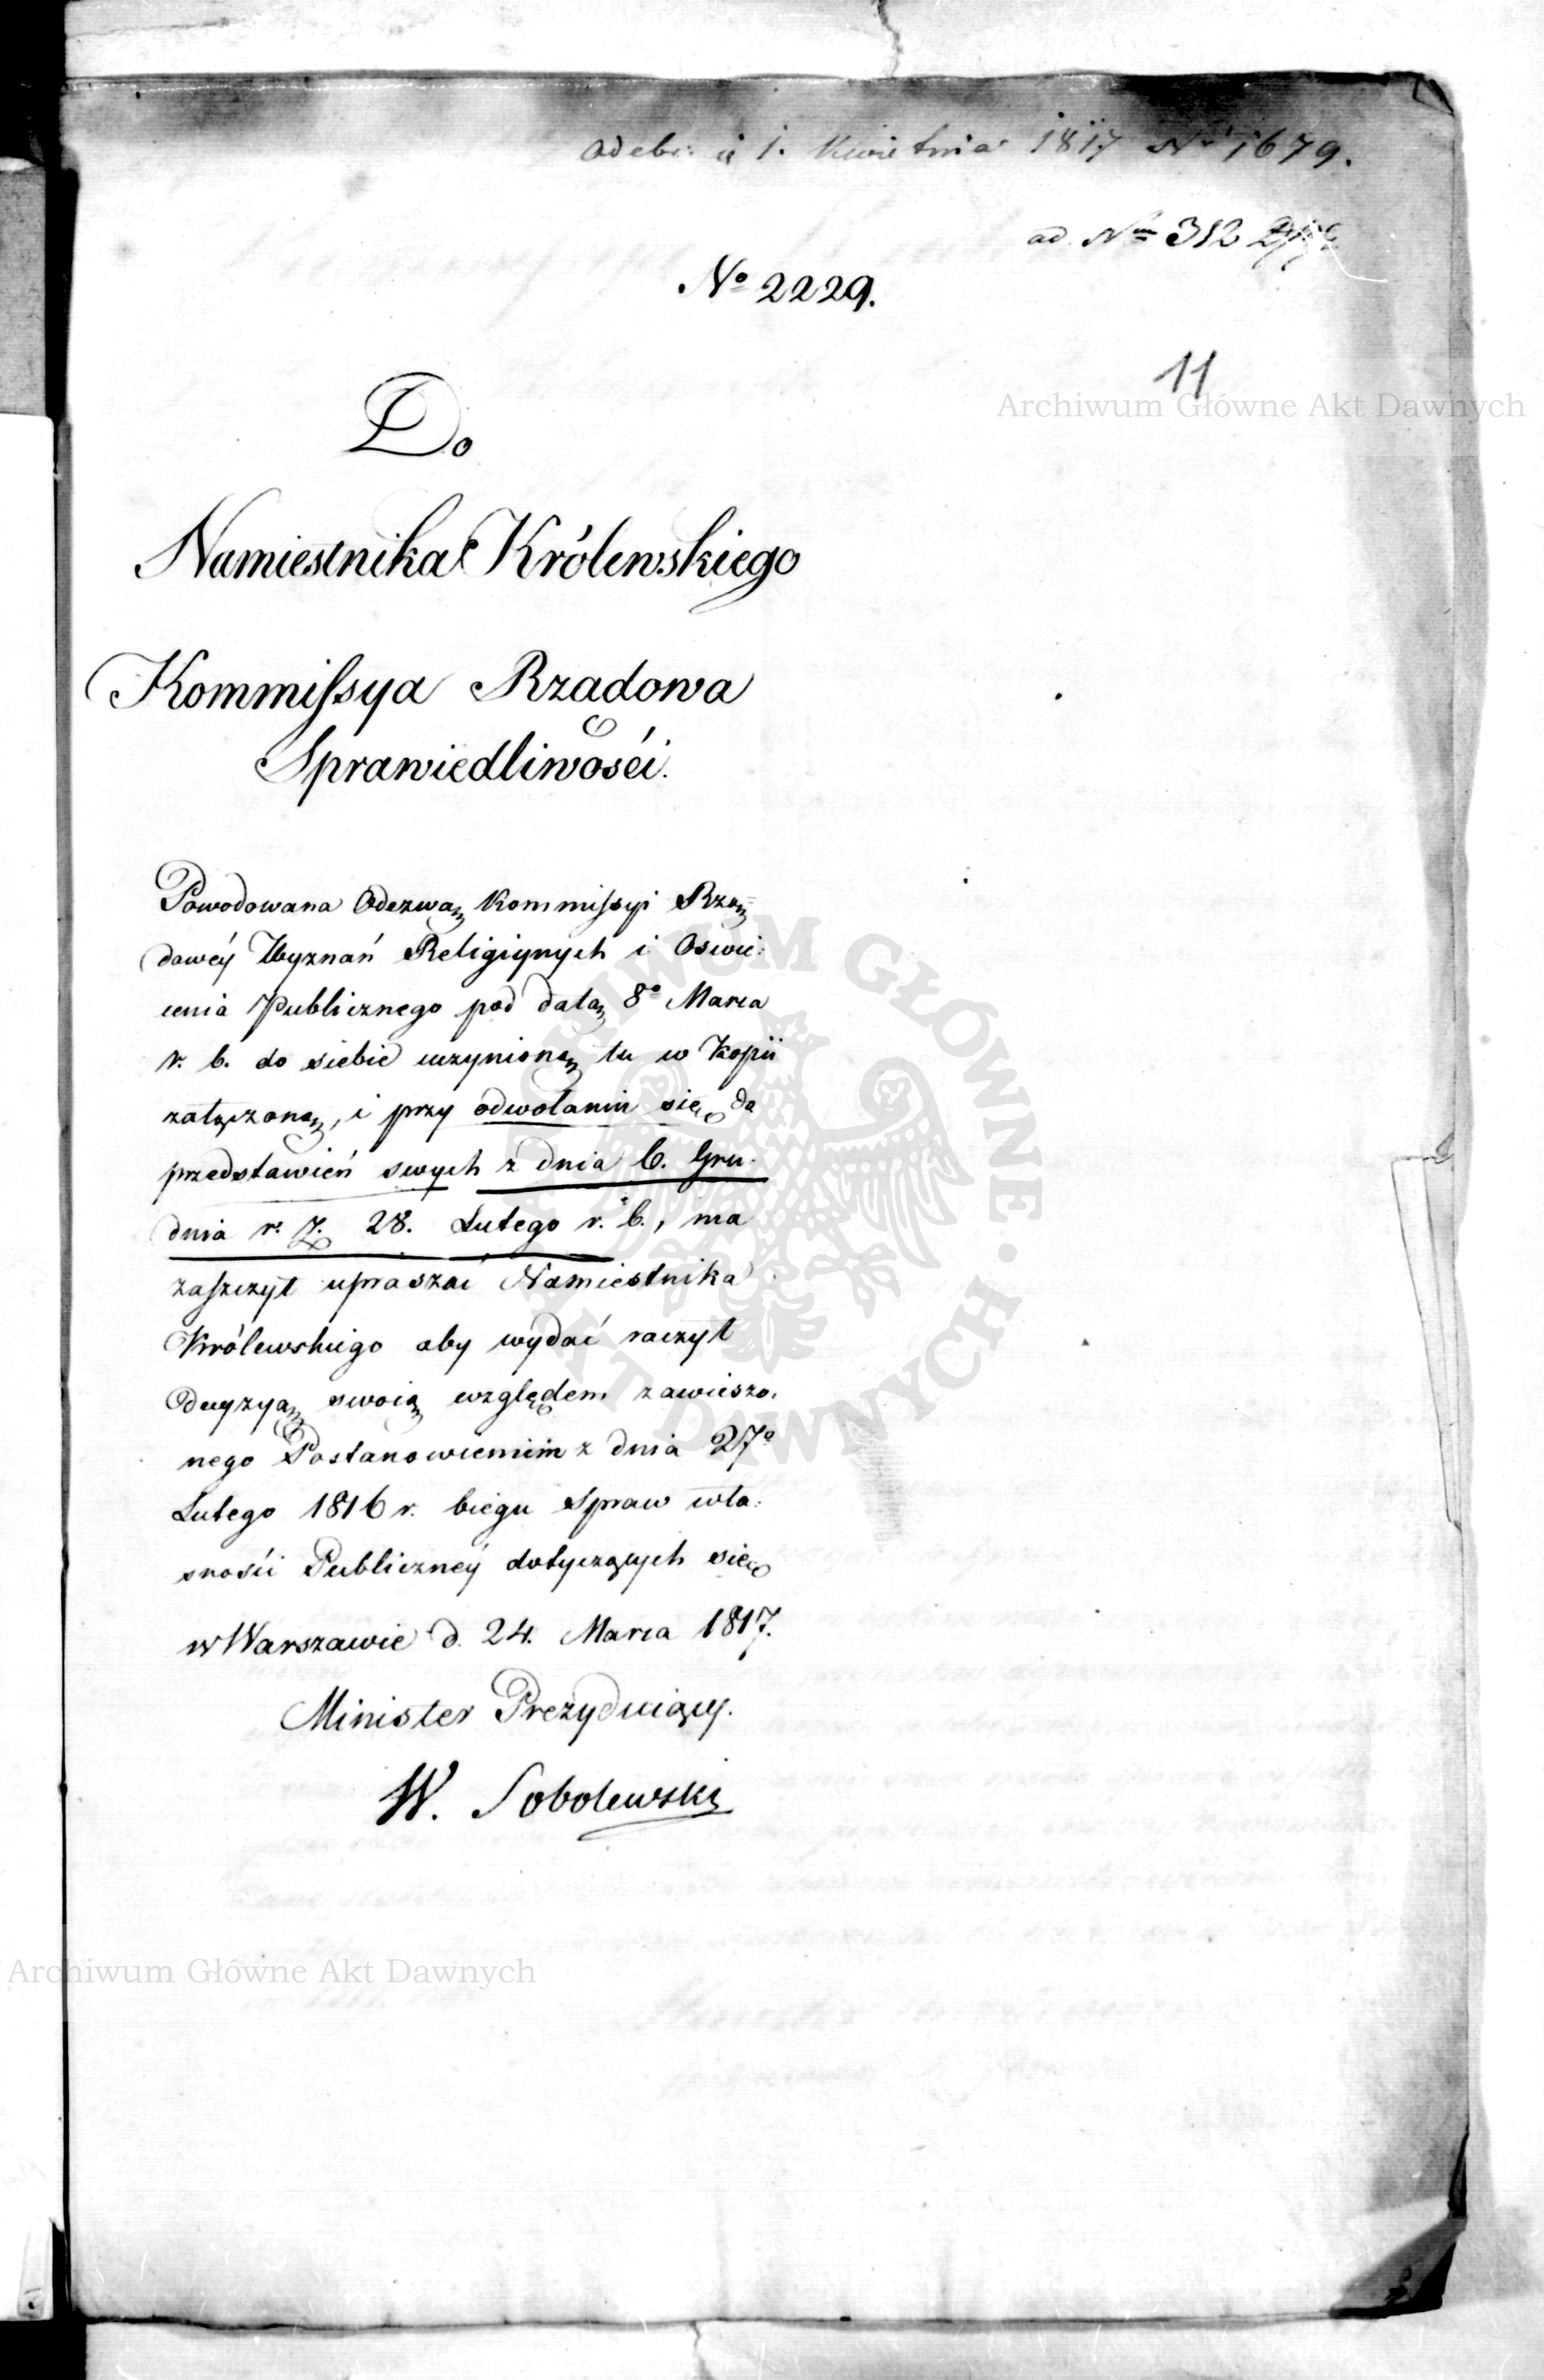 Odebr: d 1. Kwietnia 1817 Nr 1679.
ad. Num 312
No 2229.
11
Archiwum Główne Akt Dawnych
Do
Namiestnika Królewskiego
Kommissya Rządowa
Sprawiedliwości.
Powodowana Odezwą Kommissyi Rzą-
dowéy Wyznań Religiynych i Oswie:
cenia Publicznego pod datą 8o Marca
r. b. do siebie uczynioną tu w Kopii
załączoną, i przy odwołaniu się do
przedstawień swych z dnia 6. Gru-
dnia r. z. 28. Lutego r. b., ma
zaszczyt upraszać Namiestnika
Królewskiego aby wydać raczył
Decyzyą swoią względem zawieszo-
nego Postanowieniem z dnia 27o
Lutego 1816 r. biegu Spraw wła:
sności Publicznéy dotyczących się
w Warszawie d. 24. Marca 1817.
Minister Prezyduiący.
W. Sobolewski
Archiwum Główne Akt Dawnych
ARCHIWUM GŁÓWNE AKT DAWNYCH